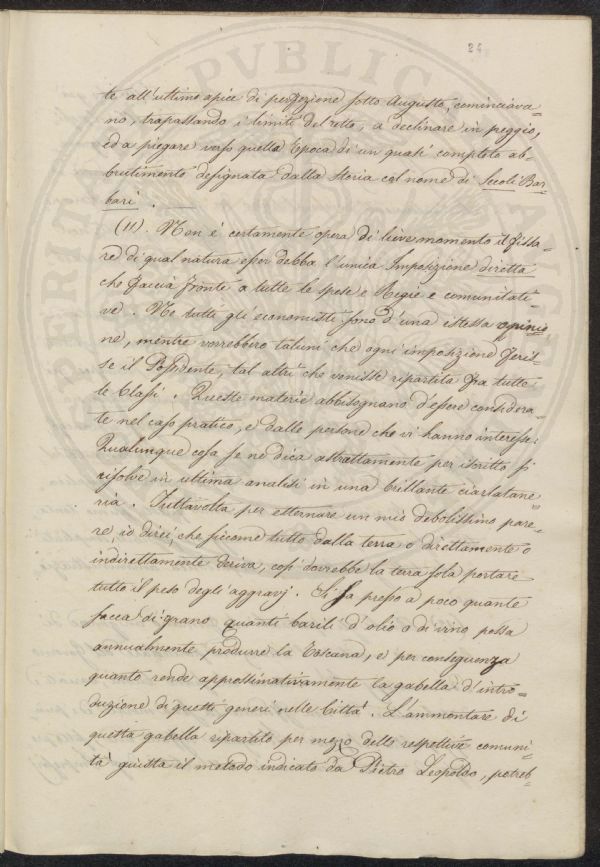 24
te all'ultimo apice di perfezione sotto Augusto, cominciava-
no, trapassando i limiti del retto, a declinare in peggio,
ed a piegare verso quella Epoca di un quasi completo ab-
brutimento designata dalla Storia col nome di Secoli Bar-
bari.
(11). Non è certamente opera di lieve momento il fissa-
re di qual natura esser debba l'unica Imposizione diretta
che faccia fronte a tutte le spese e Regie e comunitati-
ve. Ne tutti gli economisti sono d'una istessa opinio-
ne, mentre vorrebbero taluni che ogni imposizione feris-
se il Possidente, tal altri che venisse ripartita fra tutte
le Classi. Queste materie abbisognano d'essere considera-
te nel caso pratico, e dalle persone che vi hanno interesse:
Qualunque cosa se ne dica astrattamente per iscritto si
risolve in ultima analisi in una brillante ciarlatane-
ria. Tuttavolta per esternare un mio debolissimo pare-
re, io direi, che siccome tutto dalla terra o direttamente o
indirettamente deriva, così dovrebbe la terra sola portare
tutto il peso degli aggravj. Si sa presso a poco quante
sacca di grano quanti barili d'olio o di vino possa
annualmente produrre la Toscana, e per conseguenza
quanto rende approssimativamente la gabella d'intro-
duzione di questi generi nelle Città. L'ammontare di
questa gabella ripartito per mezzo delle respettive comuni-
tà giusta il metodo indicato da Pietro Leopoldo, potreb-
PUBLIC